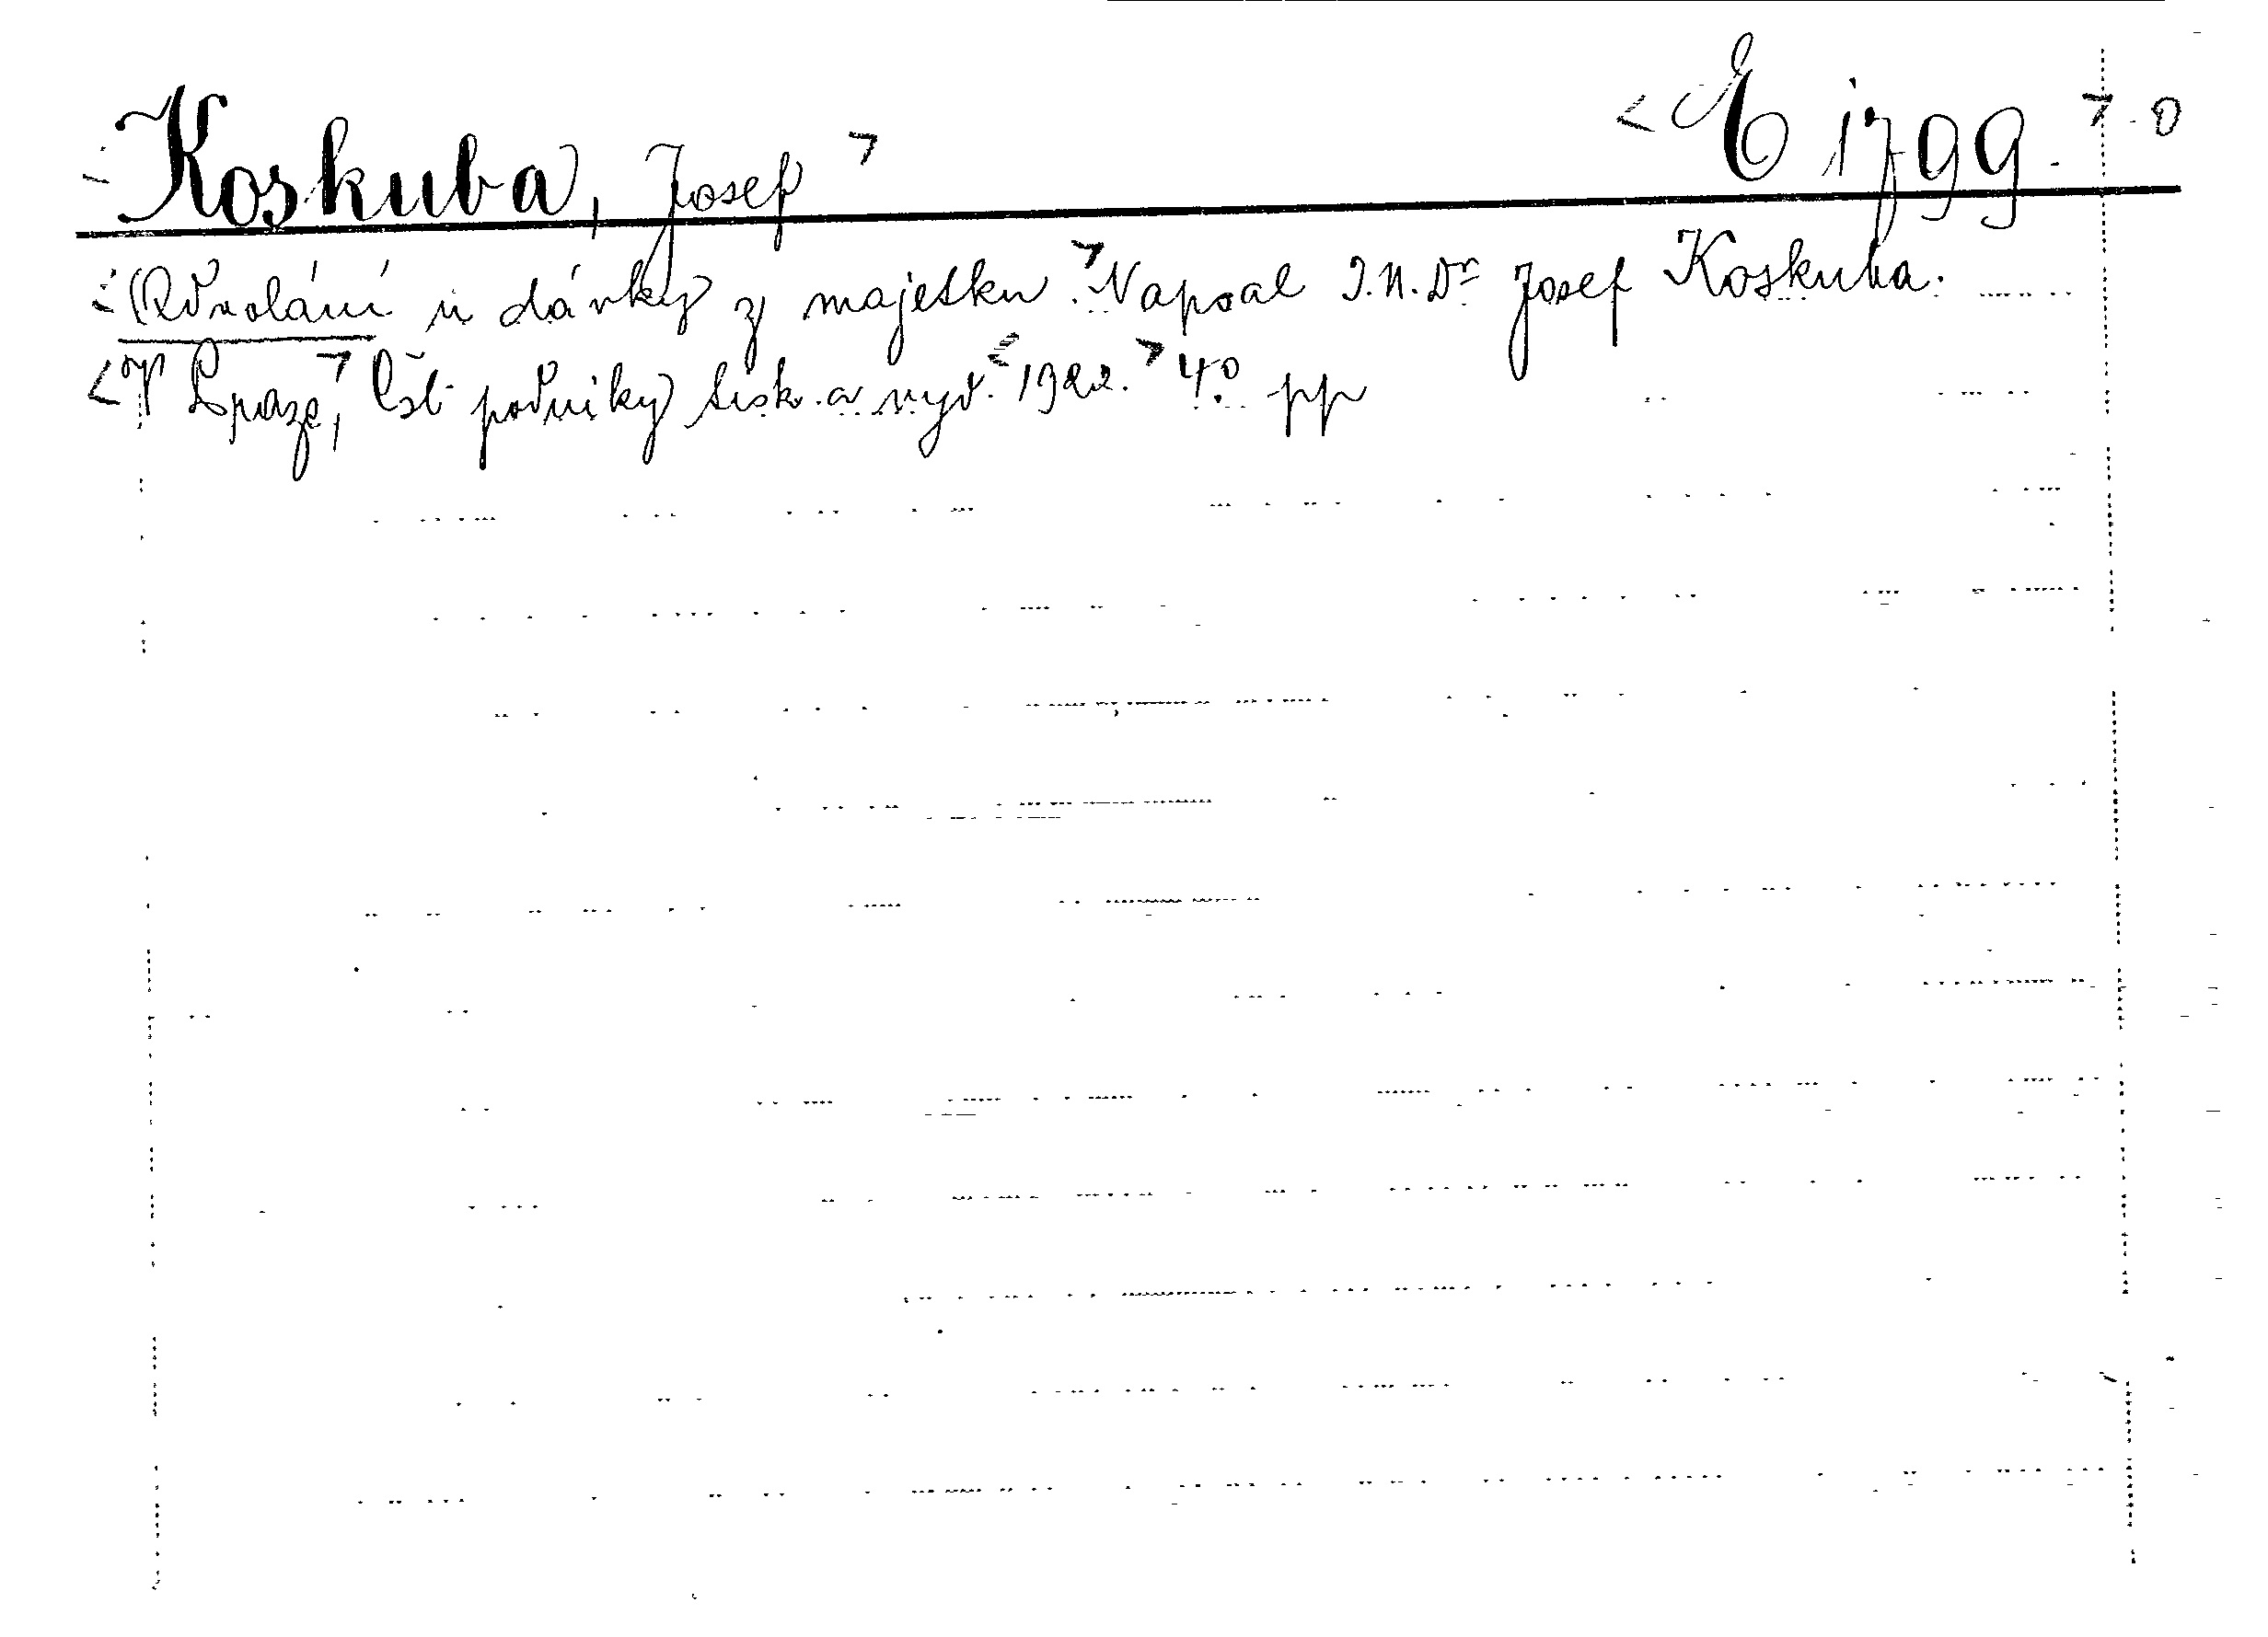 Koskuba, Josef E 1799.
Odvolání u dávky z majetku. Napsal J.U.Dr Josef Koskuba.
V Praze, Čsl. podniky tisk. a vyd. 1922. 4° pp